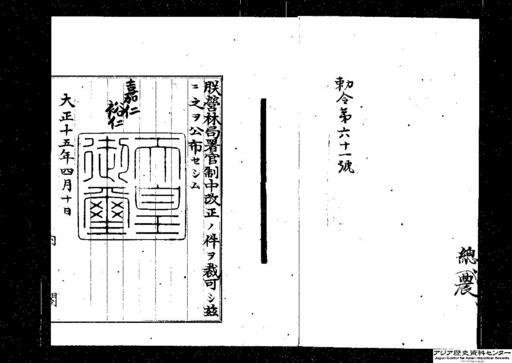 勅令第六十一號
總農
朕營林局署官制中改正ノ件ヲ裁可シ茲
ニ之ヲ公布セシム
嘉仁
裕仁
天皇御璽
大正十五年四月十日
内閣
アジア歴史資料センター
Japan Center for Asian Historical Records